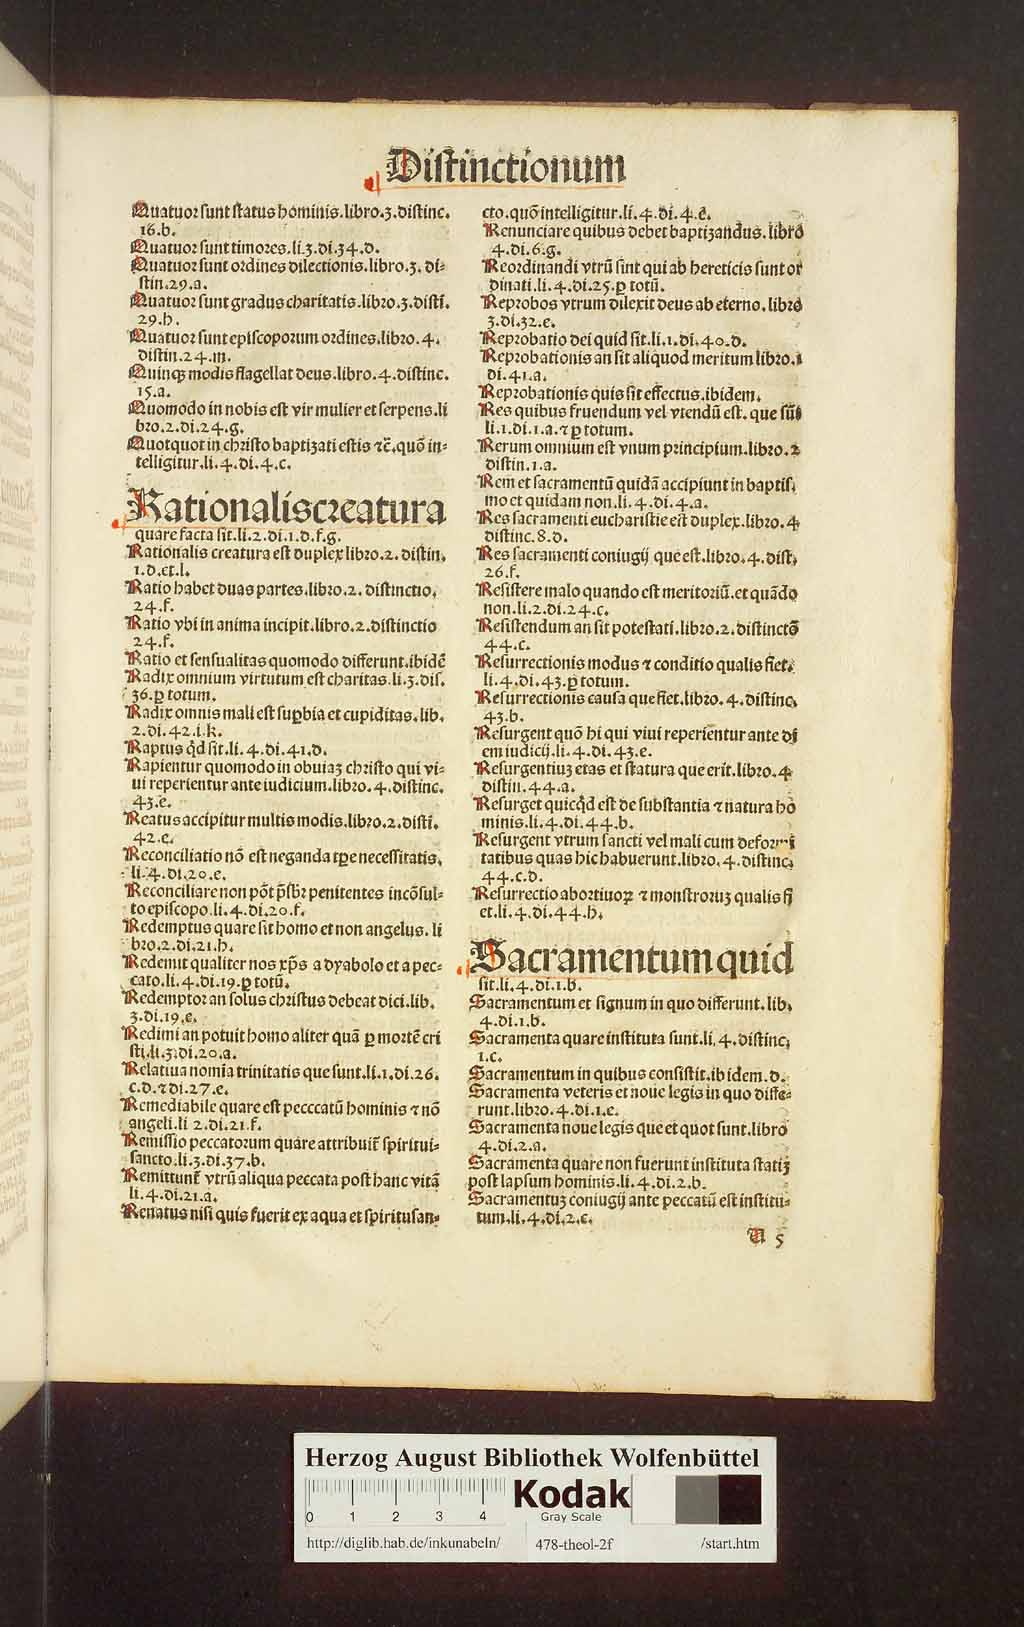 Distinctionum
Quatuor sunt status hominis.libro.3.distinc.
16.b.
Quatuor sunt timores.li.3.di.34.d.
Quatuor sunt ordines dilectionis.libro.3. di-
stin.29.a.
Quatuor sunt gradus charitatis.libro.3.disti.
29.h.
Quatuor sunt episcoporum ordines.libro.4.
distin.24.m.
Quinqꝫ modis flagellat deus.libro.4.distinc.
15.a.
Quomodo in nobis est vir mulier et serpens.li
bro.2.di.24.g.
Quotquot in christo baptizati estis ⁊c̄.quō in-
telligitur.li.4.di.4.c.
Rationalis creatura
quare facta sit.li.2.di.1.d.f.g.
Rationalis creatura est duplex libro.2. distin.
1.d.et.l.
Ratio habet duas partes.libro.2. distinctio.
24.f.
Ratio vbi in anima incipit.libro.2.distinctio
24.f.
Ratio et sensualitas quomodo differunt.ibidē
Radix omnium virtutum est charitas.li.3.dis.
36.ꝑ totum.
Radix omnis mali est supbia et cupiditas.lib.
2.di.42.i.k.
Raptus qd sit.li.4.di.41.d.
Rapientur quomodo in obuiaꝫ christo qui vi-
ui reperientur ante iudicium.libro.4.distinc.
43.e.
Reatus accipitur multis modis.libro.2.disti.
42.e.
Reconciliatio nō est neganda tꝑe necessitatis.
li.4.di.20.e.
Reconciliare non pōt psbr penitentes incōsul-
to episcopo.li.4.di.20.f.
Redemptus quare sit homo et non angelus.li
bro.2.di.21.h.
Redemit qualiter nos xp̄s a dyabolo et a pec-
cato.li.4.di.19.ꝑ totū.
Redemptor an solus christus debeat dici.lib.
3.di.19.e.
Redimi an potuit homo aliter quā ꝑ mortē cri
sti.li.3.di.20.a.
Relatiua nomia trinitatis que sunt.li.1.di.26.
c.d.⁊di.27.e.
Remediabile quare est pecccatū hominis ⁊ nō
angeli.li 2.di.21.f.
Remissio peccatorum quare attribuit̄ spiritui-
sancto.li.3.di.37.b.
Remittunt̄ vtrū aliqua peccata post hanc vitā
li.4.di.21.a.
Renatus nisi quis fuerit ex aqua et spiritusan-
cto.quō intelligitur.li.4.di.4.e.
Renunciare quibus debet baptizandus.libro
4.di.6.g.
Reordinandi vtrū sint qui ab hereticis sunt or
dinati.li.4.di.25.ꝑ totū.
Reprobos vtrum dilexit deus ab eterno.libro
3.di.32.e.
Reprobatio dei quid sit.li.1.di.40.d.
Reprobationis an sit aliquod meritum libro.1
di.41.a.
Reprobationis quis sit effectus.ibidem.
Res quibus fruendum vel vtendū est. que sūt
li.1.di.1.a.⁊ ꝑ totum.
Rerum omnium est vnum principium.libro.2
distin.1.a.
Rem et sacramentū quidā accipiunt in baptis.
mo et quidam non.li.4.di.4.a.
Res sacramenti eucharistie est duplex.libro.4
distinc.8.d.
Res sacramenti coniugij que est.libro.4.dist.
26.f.
Resistere malo quando est meritoriū.et quādo
non.li.2.di.24.c.
Resistendum an sit potestati.libro.2.distincto
44.c.
Resurrectionis modus ⁊ conditio qualis fiet.
li.4.di.43.ꝑ totum.
Resurrectionis causa que fiet.libro.4.distinc.
43.b.
Resurgent quō hi qui viui reperientur ante di
em iudicij.li.4.di.43.e.
Resurgentiuꝫ etas et statura que erit.libro.4
distin.44.a.
Resurget quicqd est de substantia ⁊ natura ho
minis.li.4.di.44.b.
Resurgent vtrum sancti vel mali cum deformi
tatibus quas hic habuerunt.libro.4.distinc.
44.c.d.
Resurrectio abortiuoꝝ ⁊ monstroruꝫ qualis fi
et.li.4.di.44.h.
Sacramentum quid
sit.li.4.di.1.b.
Sacramentum et signum in quo differunt.lib.
4.di.1.b.
Sacramenta quare instituta sunt.li.4.distinc.
1.c.
Sacramentum in quibus consistit.ibidem.d.
Sacramenta veteris et noue legis in quo diffe-
runt.libro.4.di.1.e.
Sacramenta noue legis que et quot sunt.libro
4.di.2.a.
Sacramenta quare non fuerunt instituta statiꝫ
post lapsum hominis.li.4.di.2.b.
Sacramentuꝫ coniugij ante peccatū est institu-
tum.li.4.di.2.c.
5
Herzog August Bibliothek Wolfenbüttel
0 1 2 3 4
Kodak
Gray Scale
http://diglib.hab.de/inkunabeln/ 478-theol-2f /start.htm